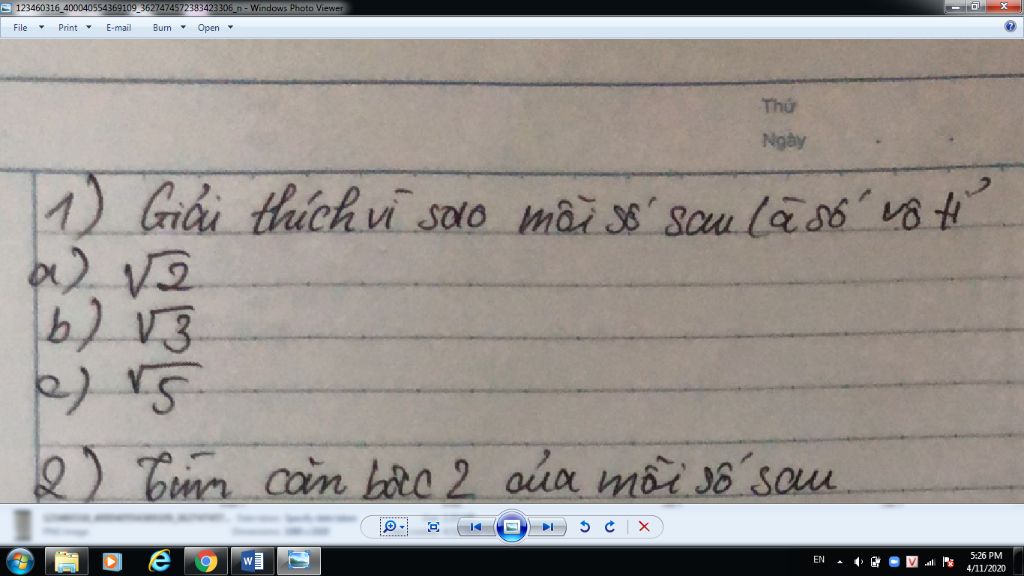 123460316_400040554369109_3627474572383423306_n - Windows Photo Viewer
File Print E-mail Burn Open
Thứ
Ngày
1) Giải thích vì sao mỗi số sau là số vô tỉ
a) √2
b) √3
c) √5
2) Tìm căn bậc 2 của mỗi số sau
EN
5:26 PM
4/11/2020